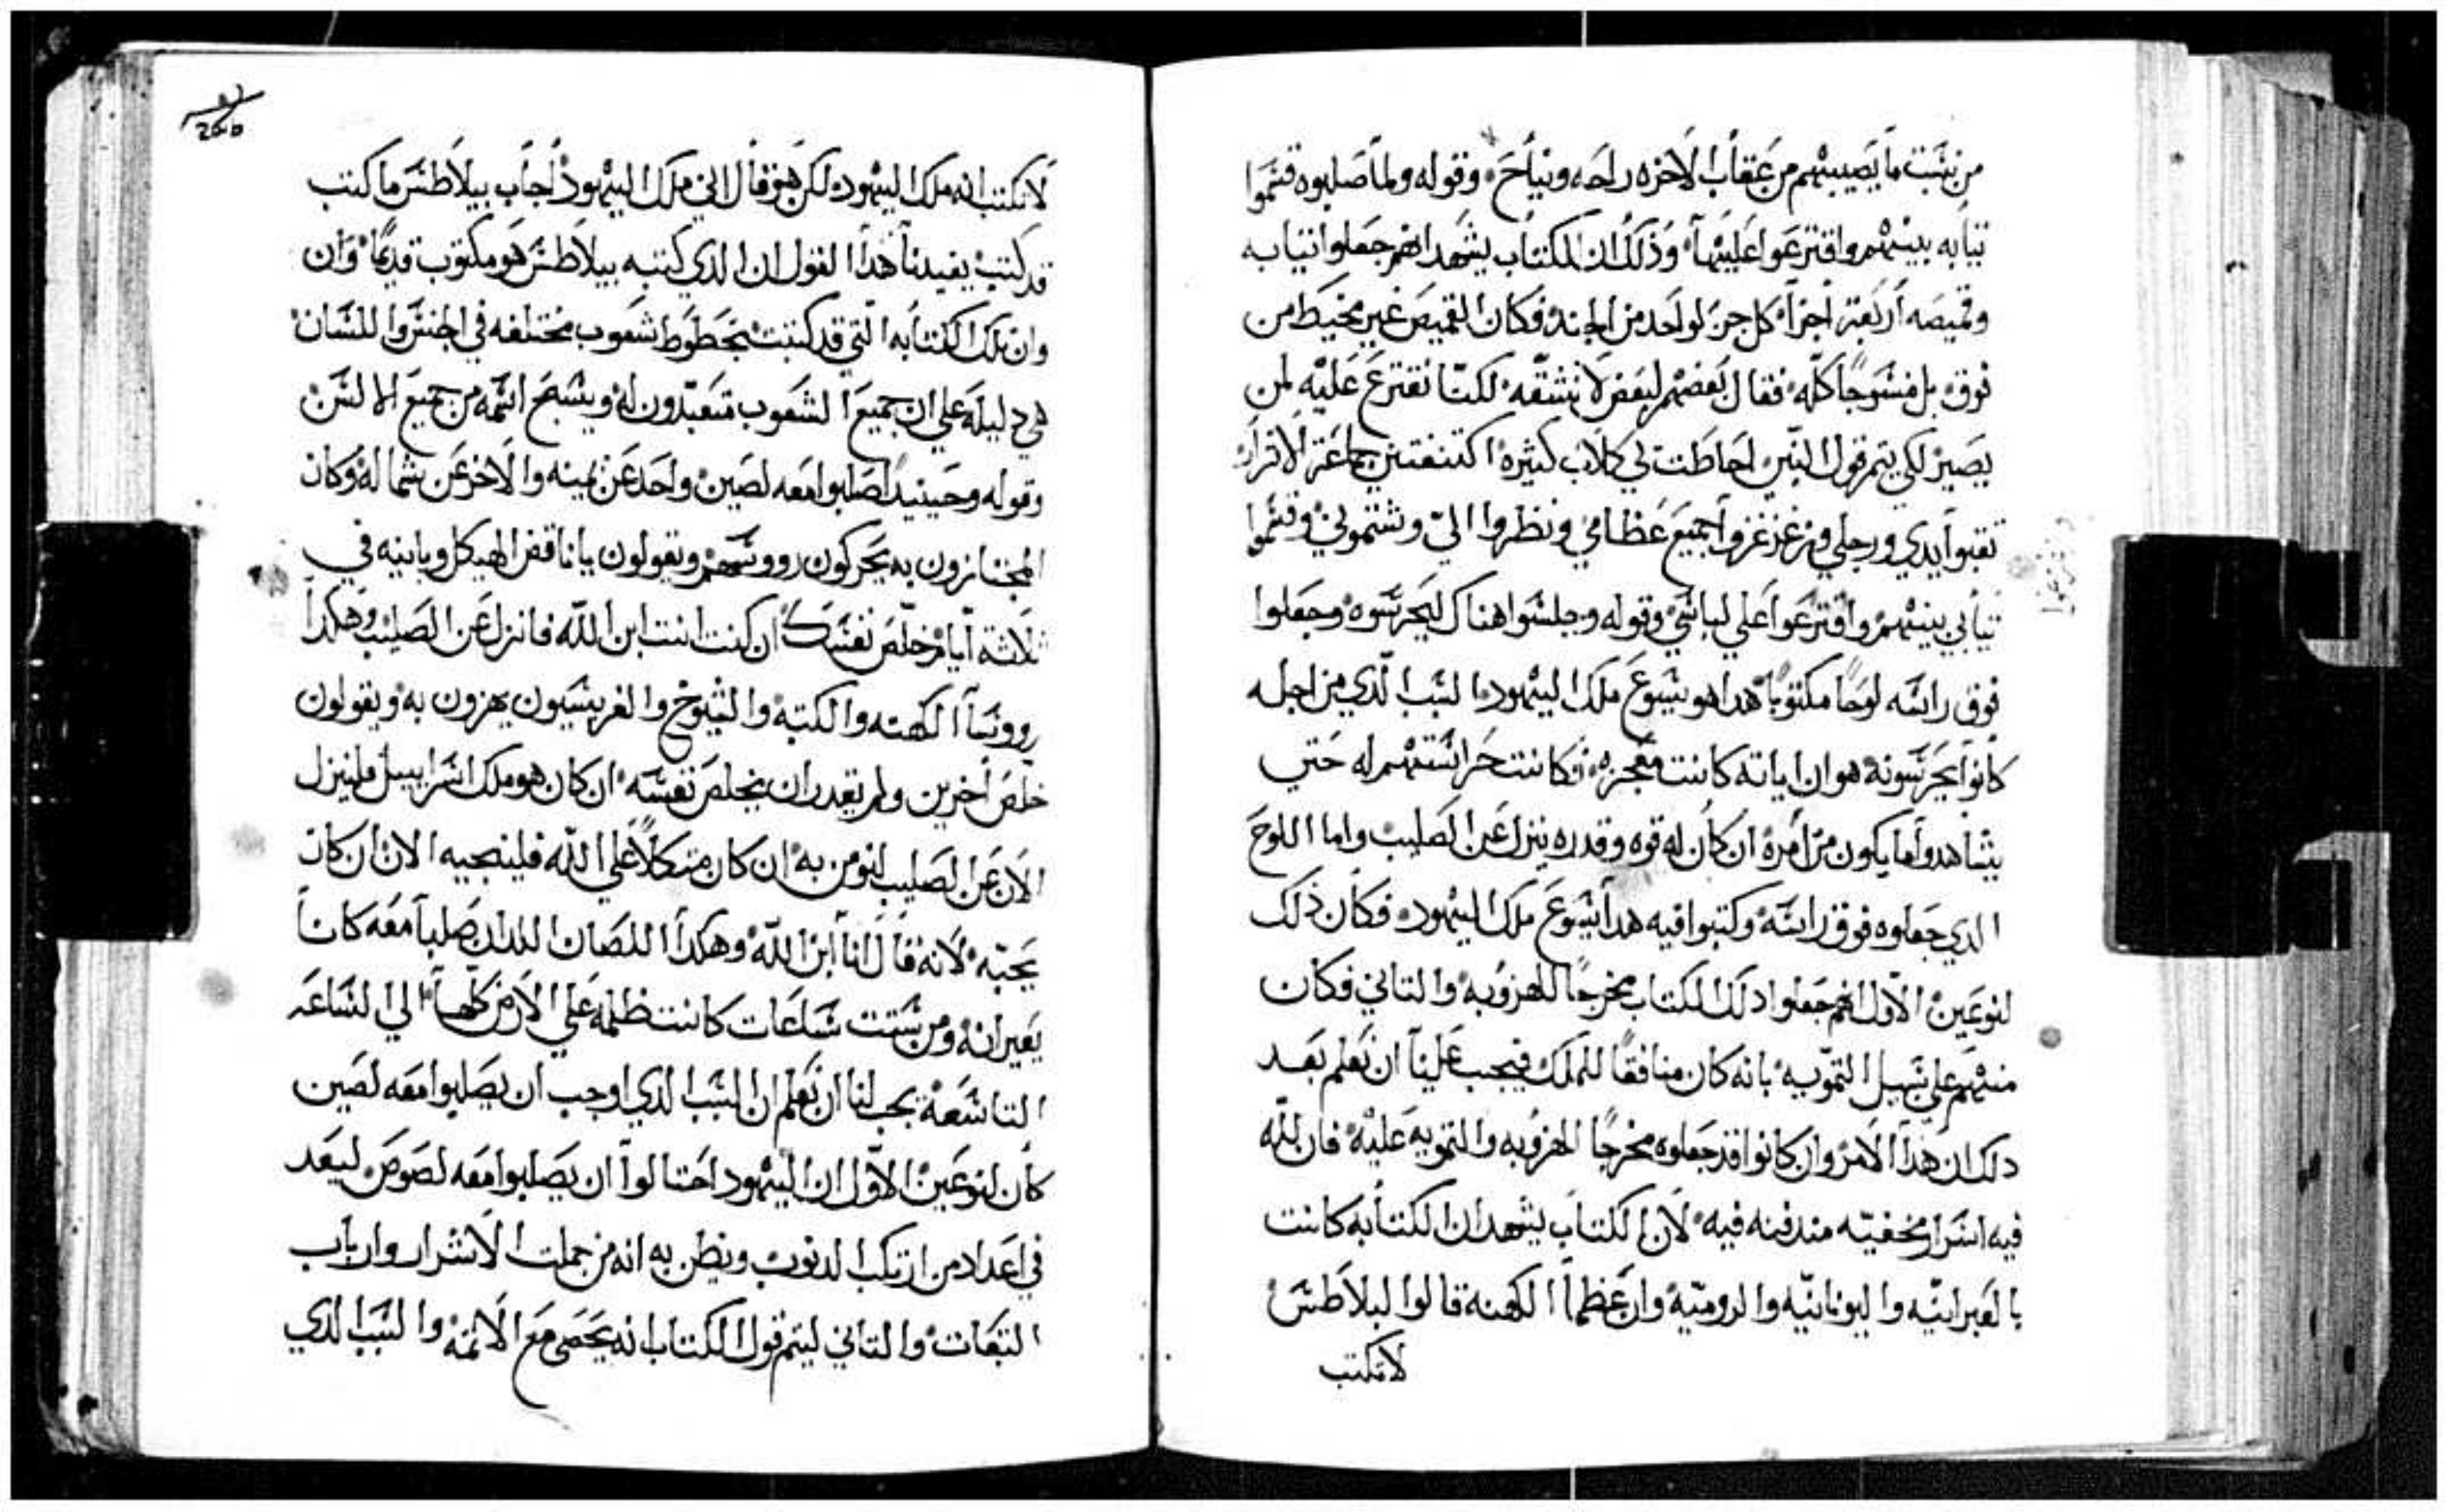 من نسبت ما يصيبهم من عقاب الاخره راحه ونياح، وقوله ولما صلبوه قسموا
ثيابه بينهم واقترعوا عليها، وذلك ان الكتاب يشهد انهم جعلوا ثيابه
وقميصه اربعة اجزا كل جز لواحد من الجند فكان القميص غير مخيط من
فوق بل منسوجًا كله، فقال بعضهم لبعض لا نشقه لكننا نقترع عليه لمن
يصير لكي يتم قول النبي احاطت بي كلاب كثيره اكتنفتني جماعة الاشرار
ثقبوا يدي ورجلي وزغزغوا جميع عظامي ونظروا الي وشتموني وقسموا
ثيابي بينهم واقترعوا علي لباسي وقوله وجلسوا هناك ليحرسوه وجعلوا
فوق راسه لوحًا مكتوبًا هدا هو يسوع ملك اليهود، السبب الذي من اجله
كانوا يحرسونه هو ان اياته كانت معجزه، فكانت حراستهم له حتي
يشاهدوا ما يكون من امره ان كان له قوه وقدره ينزل عن الصليب واما اللوح
الدي جعلوه فوق راسه وكتبوا فيه هدا يسوع ملك اليهود، فكان ذلك
لنوعين الاول انهم جعلوا دلك الكتاب مخرجًا للهزو به، والتاني فكان
منهم علي سبيل التمويه بانه كان منافقًا للملك فيجب علينا ان نعلم بعد
دلك ان هدا الامر وان كانوا قد جعلوه مخرجًا للهزو به والتمويه عليه فان لله
فيه اسرار مخفيه مندفنه فيه لان الكتاب يشهد ان الكتابه كانت
بالعبرانيه واليونانيه والروميه وان عظما الكهنه قالوا لبيلاطس
لا تكتب
لا تكتب انه ملك اليهود، لكن هو قال اني ملك اليهود اجاب بيلاطس ما كتب
قد كتب يفيدنا هدا القول ان الدي كتبه بيلاطس هو مكتوب قديمًا وان
وان تلك الكتابه التي قد كتبت بخطوط شعوب مختلفه في الجنس واللسان
هي دليله علي ان جميع الشعوب متعبدون له ويسبح اسمه من جميع الالسن
وقوله وحينيد اصلبوا معه لصين واحد عن يمينه والاخر عن شماله وكان
المجتازون به يحركون رووسهم ويقولون يا ناقض الهيكل وبانيه في
ثلاثة ايام خلص نفسك ان كنت انت ابن الله فانزل عن الصليب وهكدا
رووسا الكهنه والكتبه والشيوخ والفريسيون يهزون به ويقولون
خلص اخرين ولم يقدر ان يخلص نفسه ان كان هو ملك اسراييل فلينزل
الان عن الصليب لنومن به ان كان متكلاً علي الله فلينجيه الان ان كان
يحبه لانه قال انا ابن الله وهكدا اللصان اللدان صلبا معه كانا
يعيرانه ومن ستت ساعات كانت ظلمه علي الارض كلها الي الساعه
التاسعة يجب لنا ان نعلم ان السبب الدي اوجب ان يصلبوا معه لصين
كان لنوعين الاول ان اليهود احتالوا ان يصلبوا معه لصوص ليعد
في اعداد من ارتكب الدنوب ويظن به انه من جملت الاشرار وارباب
التبعات والتاني ليتم قول الكتاب انه يحصى مع الاتمه والسبب الدي